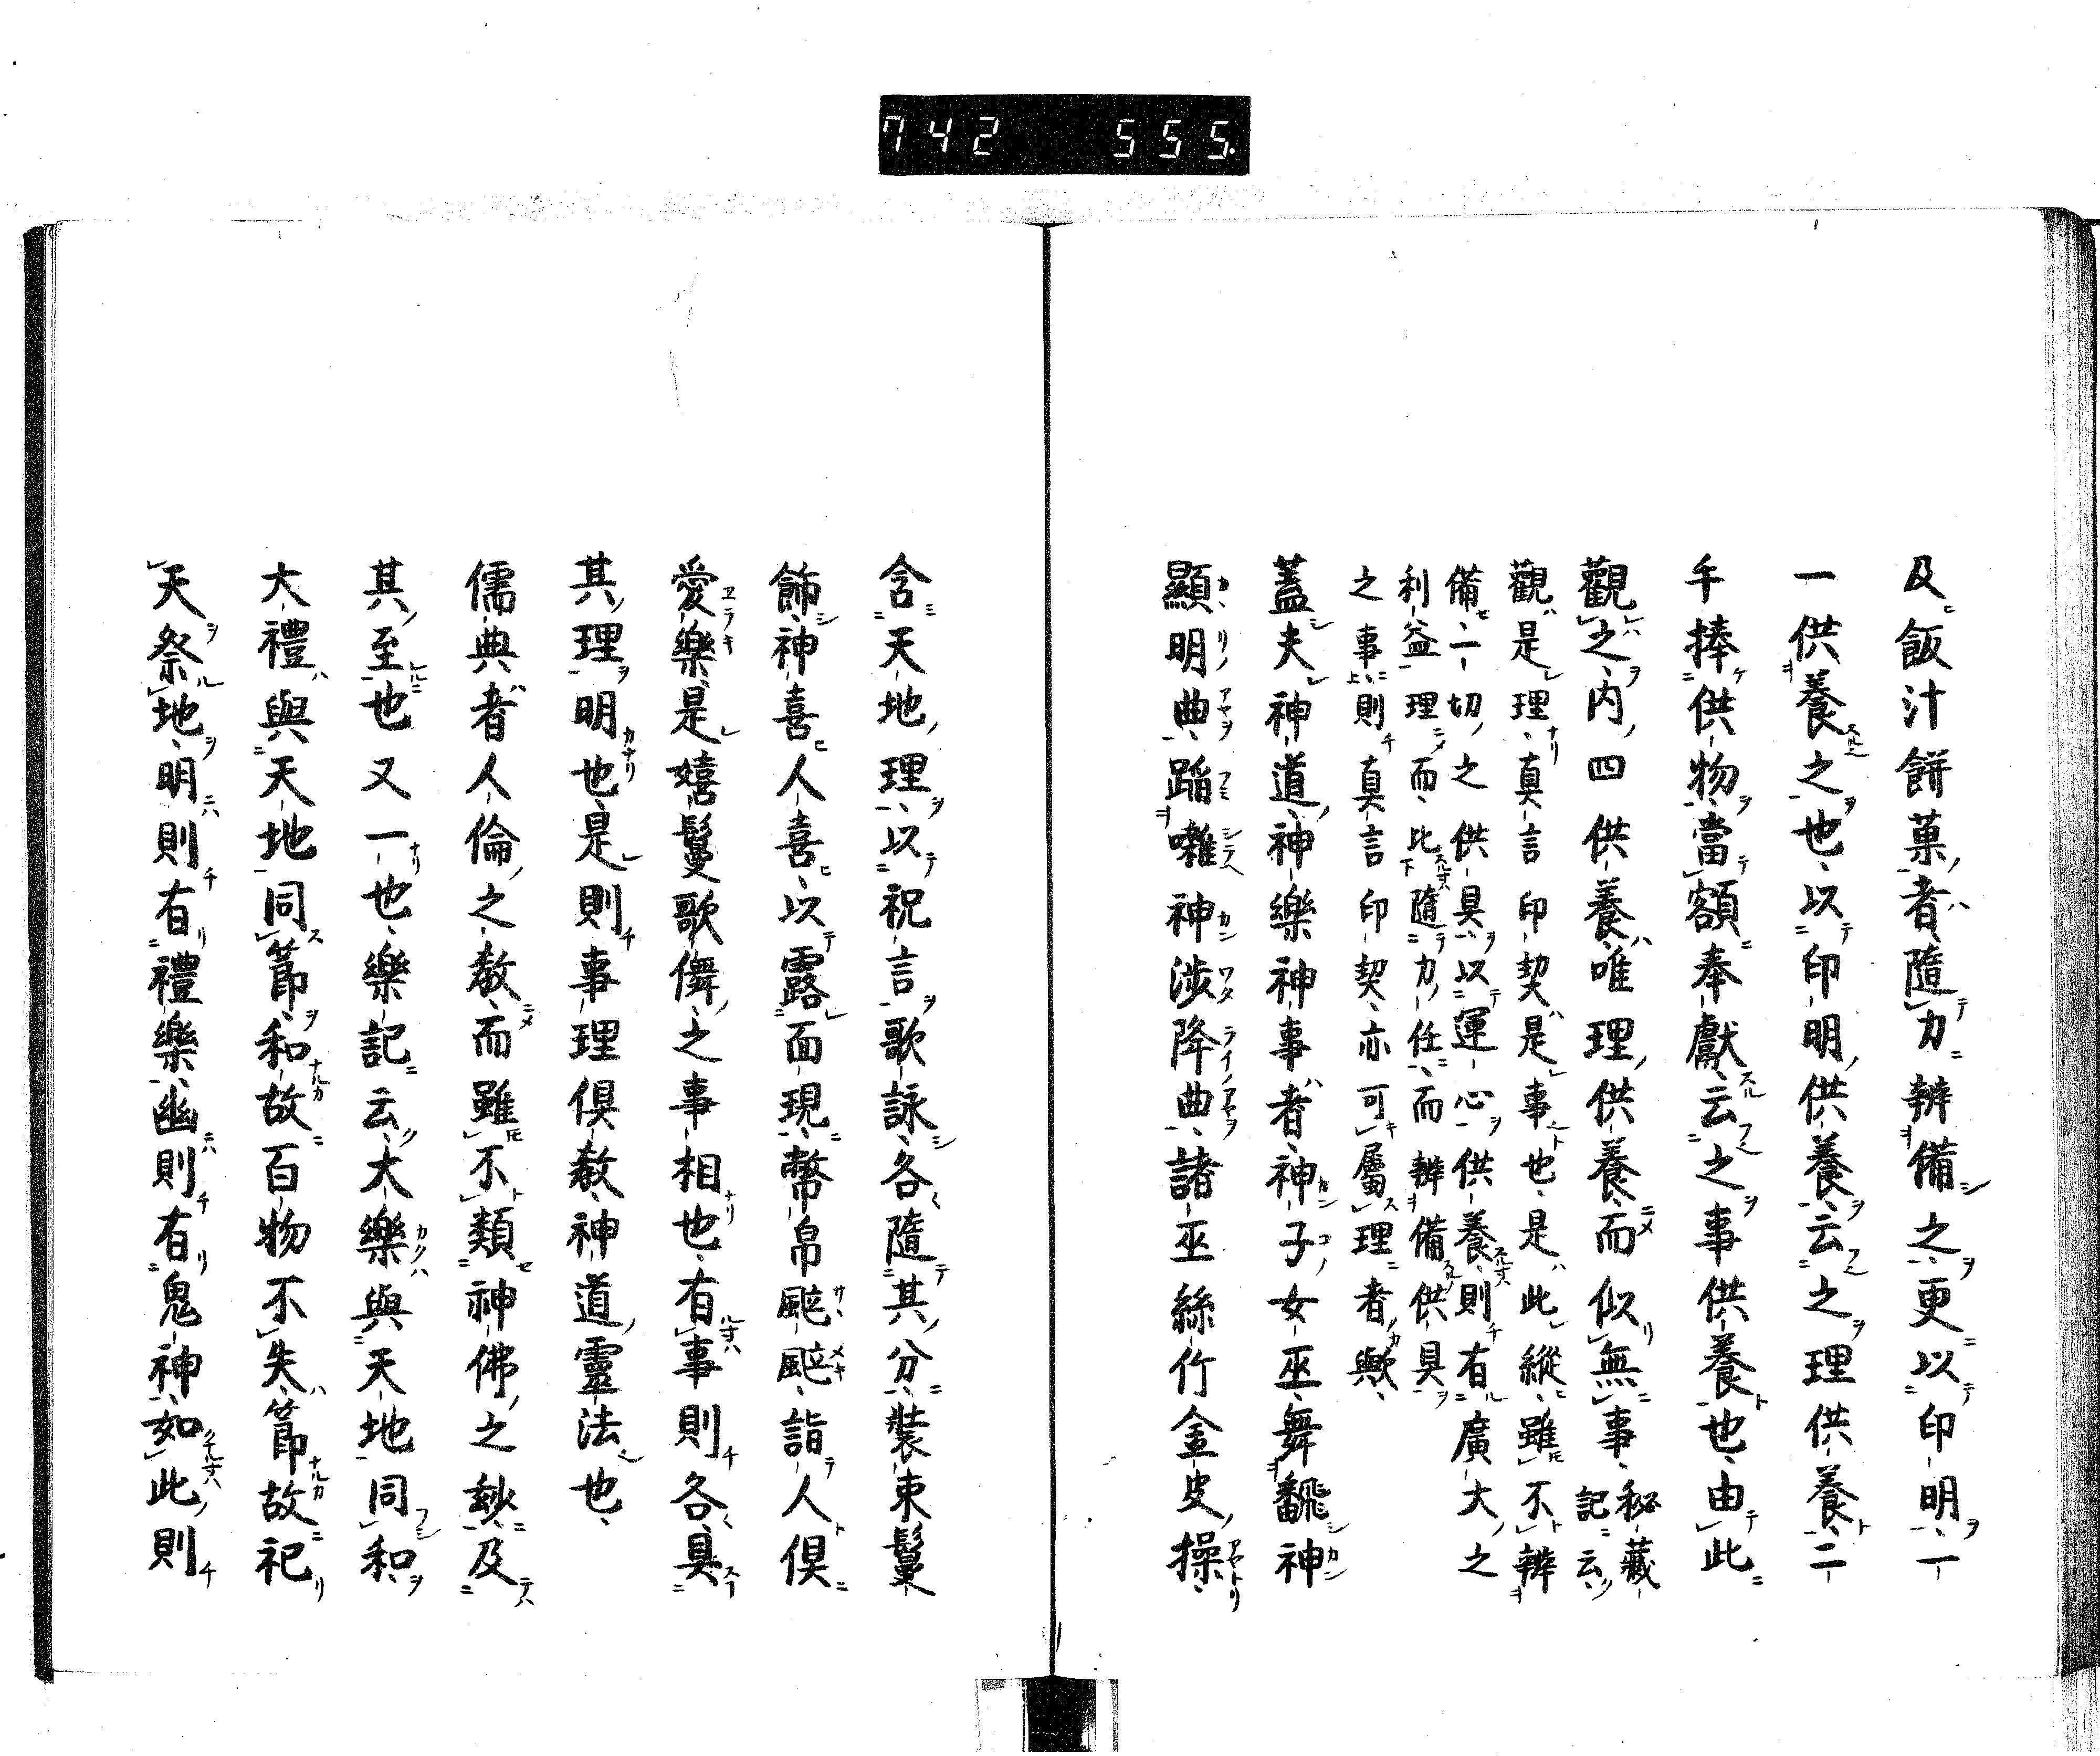 742 555.
及飯汁餅菓者隨力辨備之更以印明一
一供養之也以印明供養云之理供養二
千捧供物當額奉獻云之事供養也由此
觀之内四供養唯理供養而似無事秘藏記云
觀是理真言印契是事也是此縱雖不辨
備一切之供具以運心供養則有廣大之
利益理而比隨力任而辨備供具
之事則真言印契亦可屬理者歟
蓋夫神道神樂神事者神子女巫舞飜神
顯明曲蹈囃神渉降曲諸巫絲竹金皮操
含天地理以祝言歌詠各隨其分裝束鬘
飾神喜人喜以露面現幣帛颭颭詣人倶
愛樂是嬉鬘歌儛之事相也有事則各具
其理明也是則事理倶教神道靈法也
儒典者人倫之教而雖不類神佛之玅及
其至也又一也樂記云大樂與天地同和
大禮與天地同節和故百物不失節故祀
天祭地明則有禮樂幽則有鬼神如此則